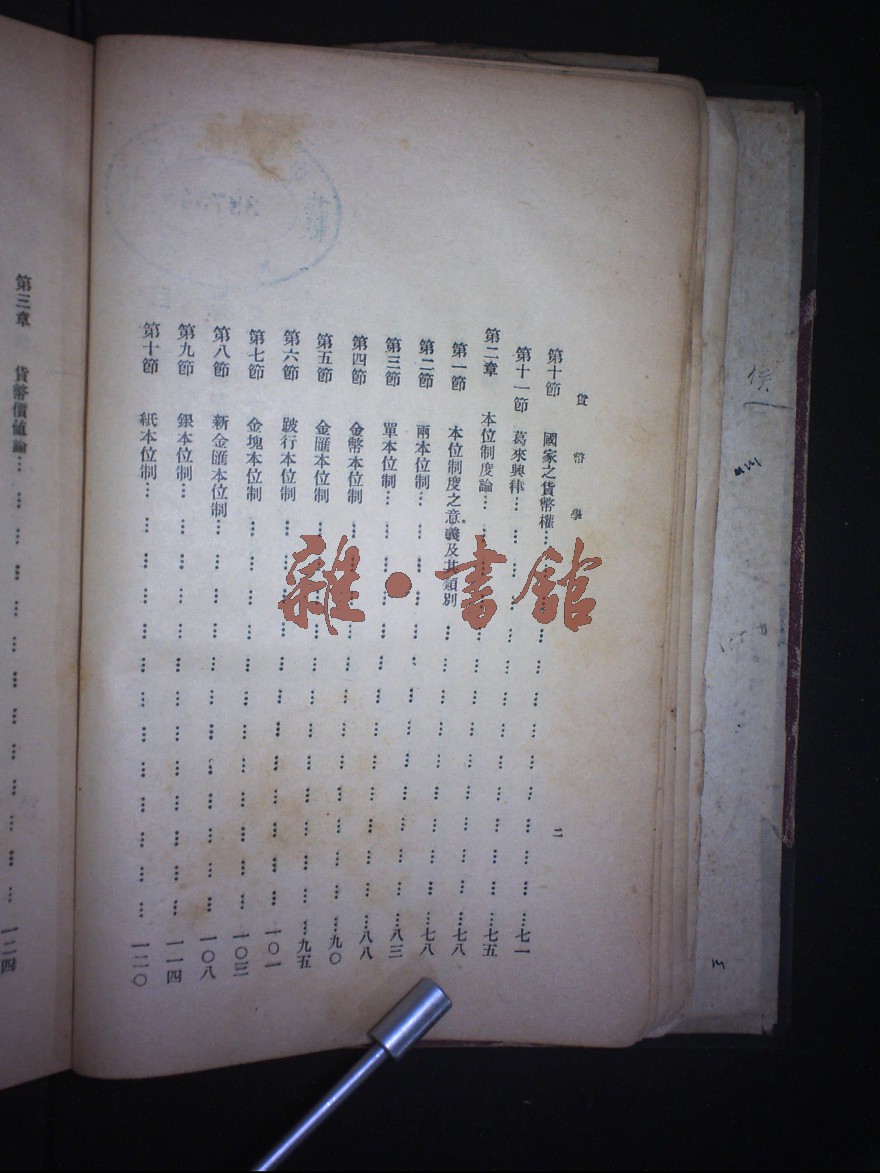 貨幣學
二
第十節　國家之貨幣權……七一
第十一節　葛來興律……七五
第二章　本位制度論……七八
第一節　本位制度之意義及其類別……七八
第二節　兩本位制……八三
第三節　單本位制……八八
第四節　金幣本位制……九〇
第五節　金匯本位制……九五
第六節　跛行本位制……一〇一
第七節　金塊本位制……一〇三
第八節　新金匯本位制……一〇八
第九節　銀本位制……一一四
第十節　紙本位制……一二〇
第三章　貨幣價值論……一二四
雜·書館